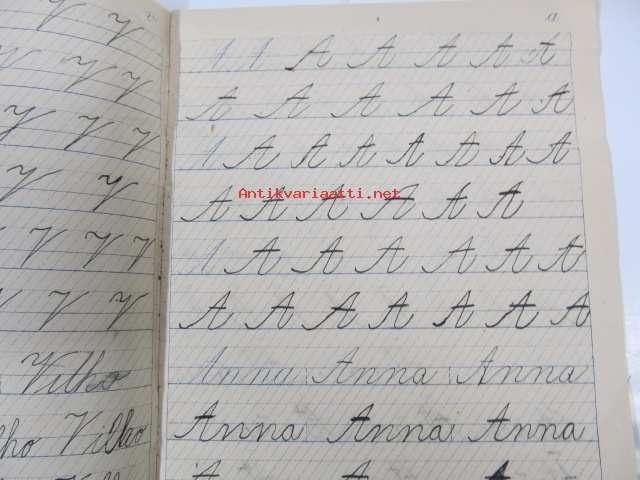 V V
V V V
V V V
V V
V V V
V V V
Vilho
Vilho
A A A A A A A
A A A A A A
A A A A A A A A
Antikvariaatti.net
A A A A A A
A A A A A A A
A A A A A A A
Anna Anna Anna
Anna Anna Anna